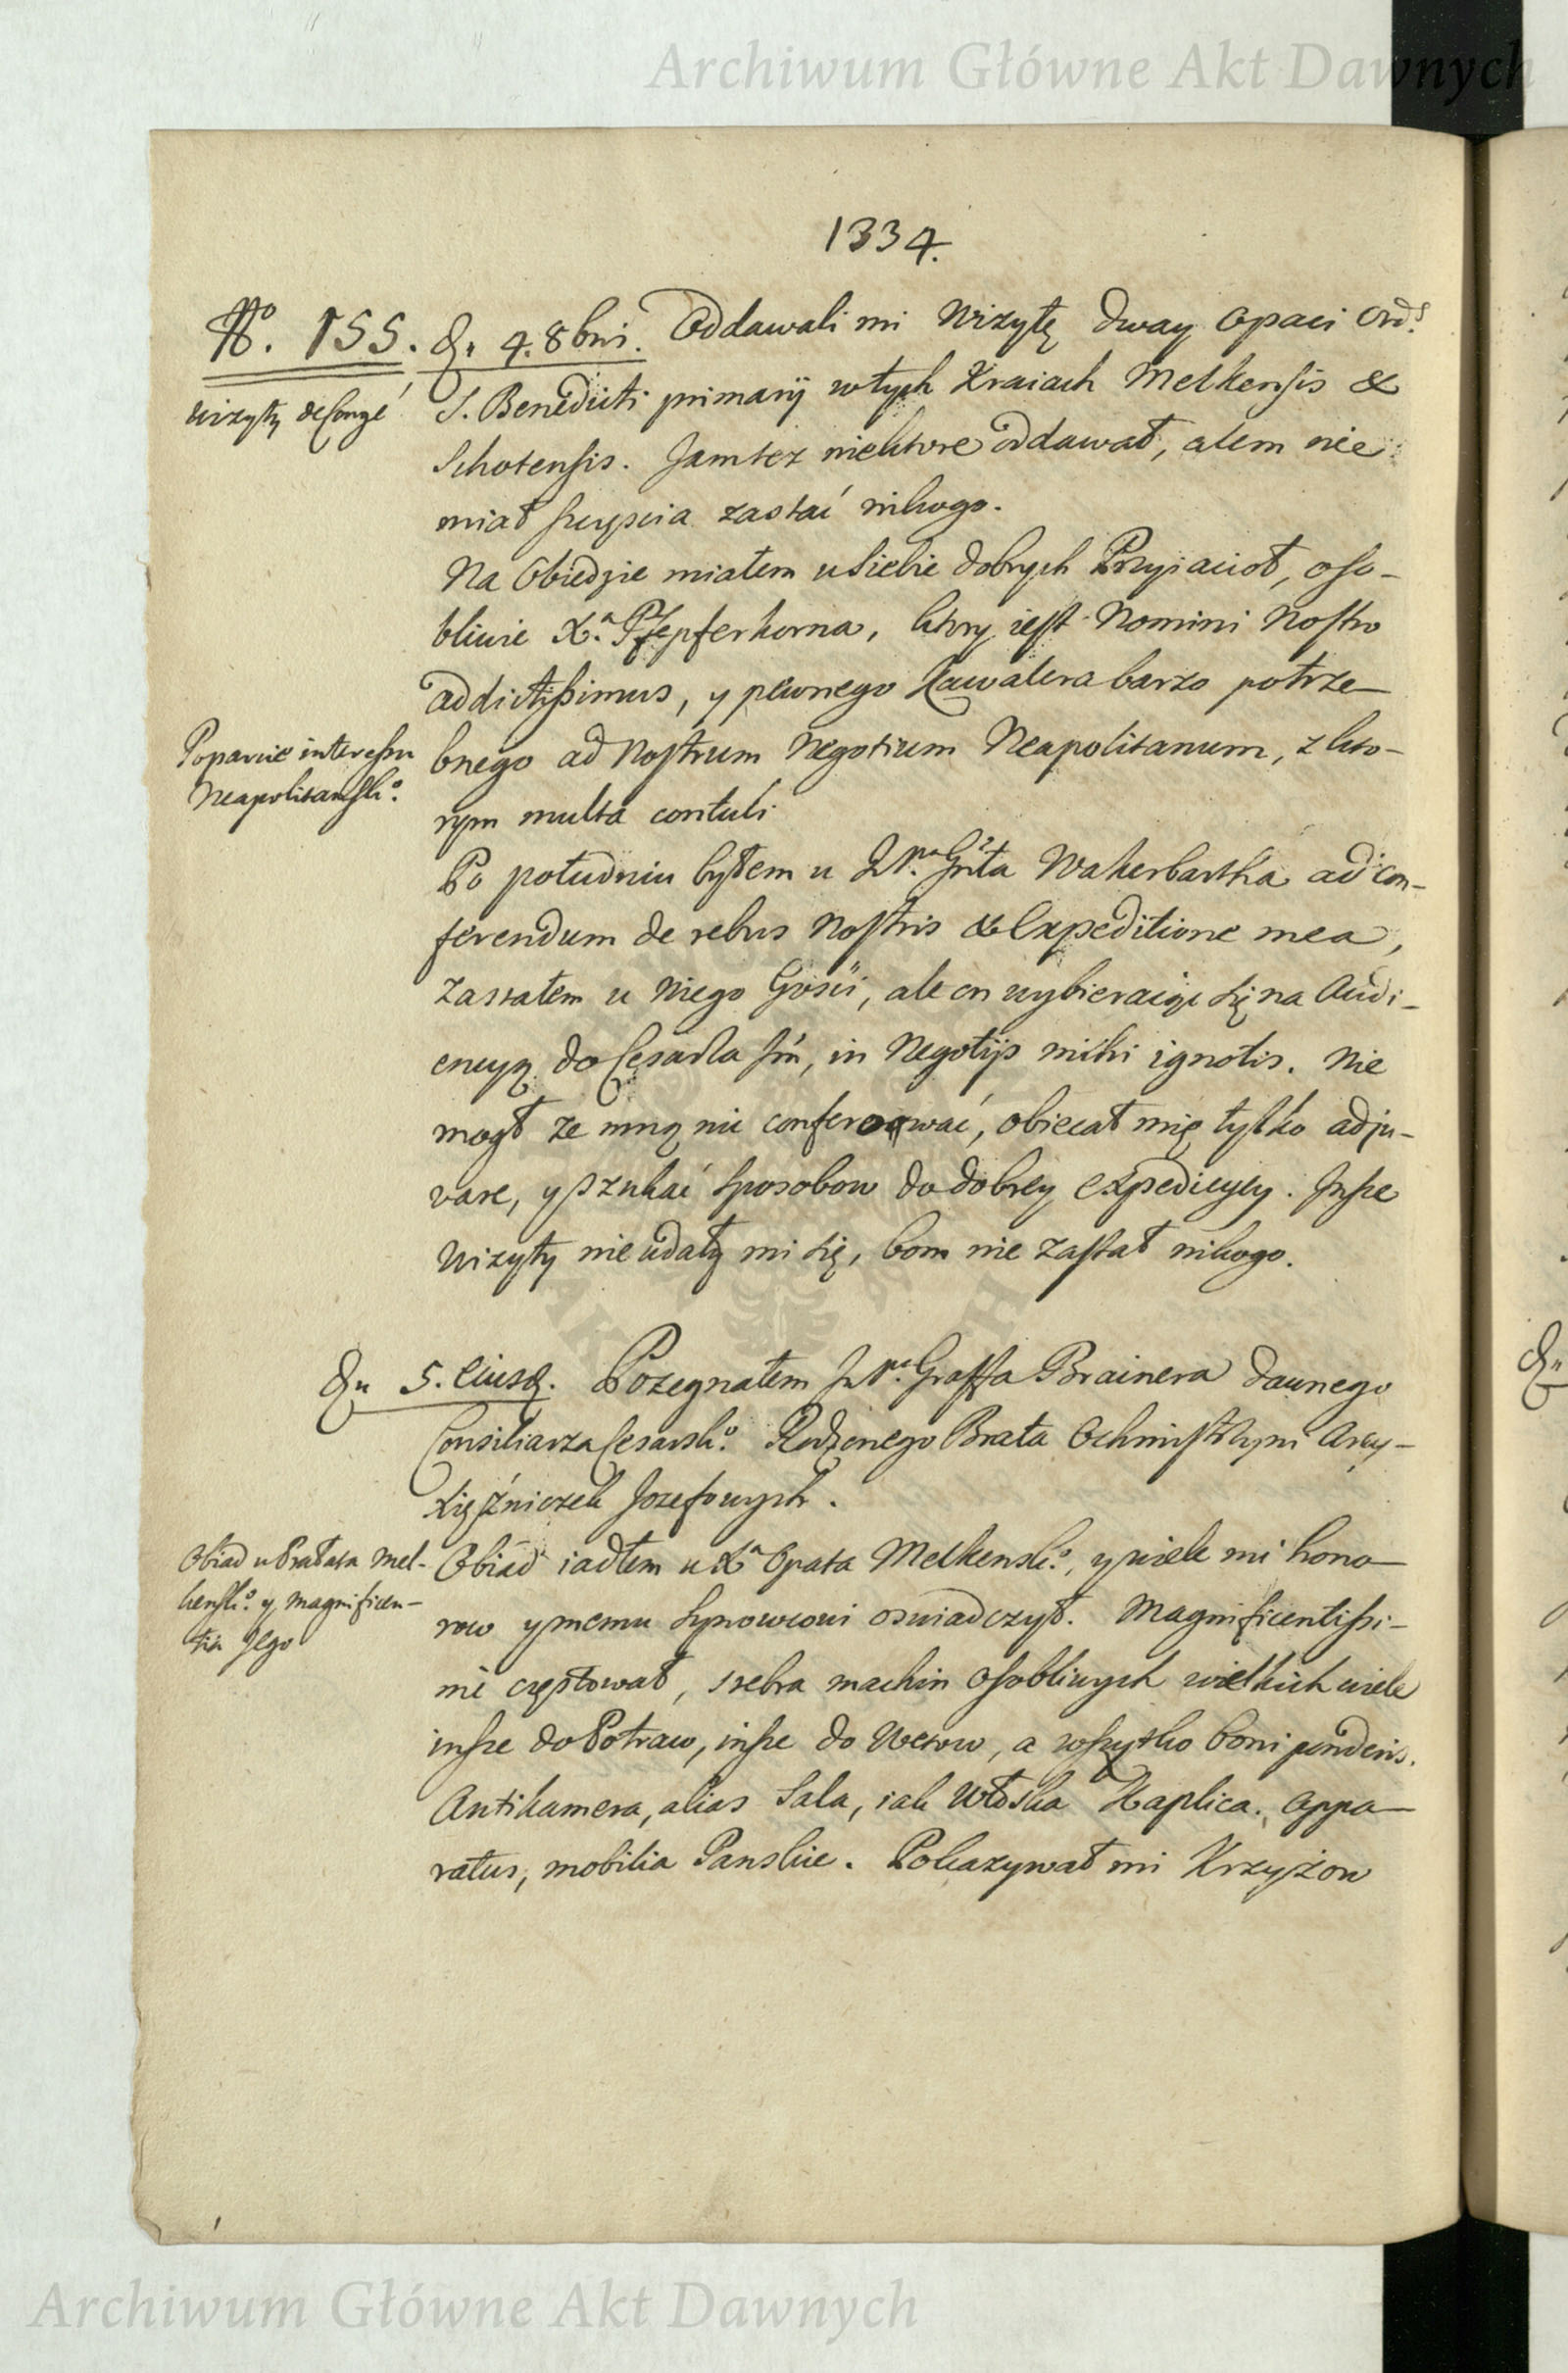 Archiwum Główne Akt Dawnych
1334.
No. 155. D. 4. 8bris. Oddawali mi Wizytę dway Opaci Ord.s
Wizyty de Congé
S. Benedicti primarij w tych Kraiach Melkensis &
Schotensis. Jam tez niektore oddawał, alem nie
miał szczęscia zastać nikogo.
Na Obiedzie miałem u Siebie dobrych Przyiacioł, oso-
bliwie X.a Pfepferkorna, ktory iest Nomini Nostro
addictissimus, y pewnego Kawalera barzo potrze-
Poparcie interessu
Neapolitansk.o
bnego ad Nostrum Negotium Neapolitanum, z kto-
rym multa contuli
Po południu byłem u JP.na Grfa Wakerbartha ad con-
ferendum de rebus Nostris & Expeditione mea,
Zastałem u Niego Gosci, ale on wybieraiąc się na Audi-
encyą do Cesarza Jm, in Negotijs mihi ignotis. Nie
mogł ze mną nic conferować, obiecał mię tylko adju-
vare, y szukać sposobow do dobrey expedicyey. Insze
Wizyty nie udały mi się, bom nie zastał nikogo.
D. 5. Eiusd. Pozegnałem JP.na Graffa Brainera dawnego
Consiliarza Cesarsk.o Rodzonego Brata Ochmistrzyni Arcy-
Xiężniczek Jozefowych.
Obiad u Prałata Mel-
kensk.o y magnificen-
tia Jego
Obiad iadłem u X.a Opata Melkensk.o, y wiele mi hono-
row y memu Synowcowi oswiadczył. Magnificentissi-
me częstował, srebra machin osobliwych wielkich wiele
insze do Potraw, insze do Wetow, a wszytko boni ponderis.
Antikamera, alias Sala, iak Włoska Kaplica. Appa-
ratus, mobilia Panskie. Pokazywał mi Krzyżow
Archiwum Główne Akt Dawnych